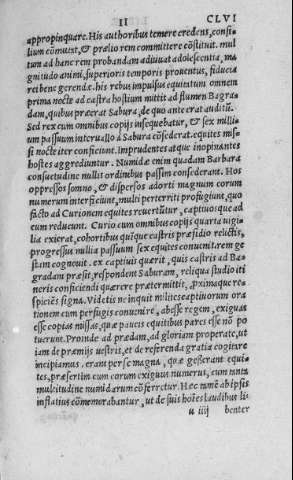 II CLVI
appropinquare. His authoribus temere credens, consi-
lium cõmutat, & prælio rem committere cõstituit. mul
tum ad hanc rem probandam adiuuat adolescentia, ma
gnitudo animi, superioris temporis prouentus, fiducia
rei bene gerendæ. his rebus impulsus equitatum omnem
prima nocte ad castra hostium mittit ad flumen Bagra-
dam, quibus præerat Sabura, de quo ante erat auditũ.
Sed rex cum omnibus copijs insequebatur, & sex milli-
um passuum interuallo à Sabura cõsederat. equites mis-
si nocte iter conficiunt. Imprudentes atque inopinantes
hostes aggrediuntur. Numidæ enim quadam Barbara
consuetudine nullis ordinibus passim consederant. Hos
oppressos somno, & dispersos adorti magnum eorum
numerum interficiunt, multi perterriti profugiunt, quo
facto ad Curionem equites reuertũtur, captiuosque ad
eum reducunt. Curio cum omnibus copijs quarta uigi-
lia exierat, cohortibus quĩque castris præsidio relictis,
progressus millia passuum sex equites conuenit. rem ge
stam cognouit. ex captiuis quærit, quis castris ad Ba-
gradam præsit, respondent Saburam, reliqua studio iti
neris conficiendi quærere prætermittit, proximaque re-
spiciẽs signa. Videtis ne inquit milites captiuorum ora
tionem cum perfugis conuenire, abesse regem, exiguas
esse copias missas, quæ paucis equitibus pares esse nõ po
tuerunt. Proinde ad prædam, ad gloriam properate, ut
iam de præmijs uestris, et de referenda gratia cogitare
incipiamus. erant perse magna, quæ gesserant equi-
tes, præsertim cum eorum exiguus numerus, cum tanta
multitudine numidarum cõferretur. Hæc tamẽ ab ipsis
inflatius cõmemorabantur, ut de suis hoĩes laudibus li
u iiij benter